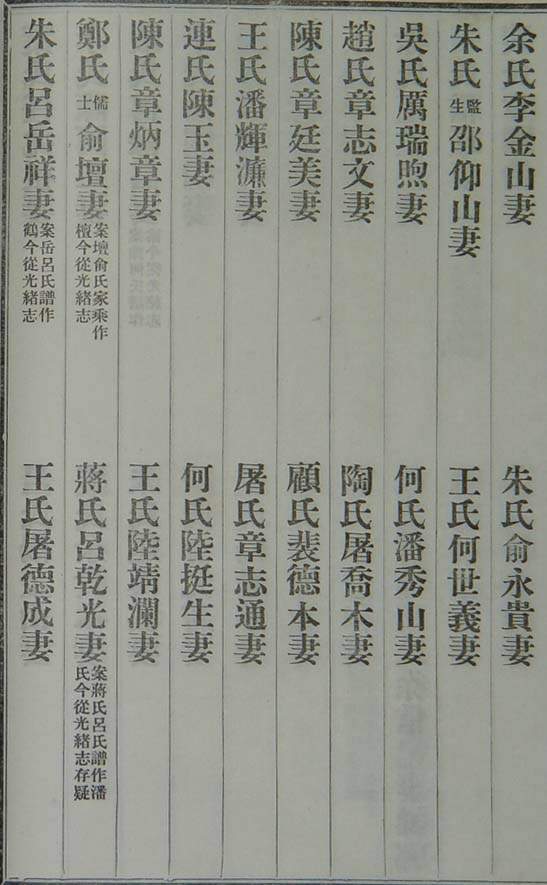 余氏李金山妻　朱氏俞永貴妻
朱氏監生邵仰山妻　王氏何世義妻
吳氏厲瑞煦妻　何氏潘秀山妻
趙氏章志文妻　陶氏屠喬木妻
陳氏章廷美妻　顧氏裴德本妻
王氏潘輝濂妻　屠氏章志通妻
連氏陳玉妻　何氏陸挺生妻
陳氏章炳章妻　王氏陸靖瀾妻
鄭氏儒士俞壇妻案壇俞氏家乘作檀今從光緒志　蔣氏呂乾光妻案蔣氏呂氏譜作潘氏今從光緒志存疑
朱氏呂岳祥妻案岳呂氏譜作鶴今從光緒志　王氏屠德成妻